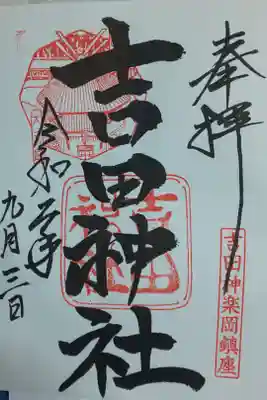 奉拝
吉田神楽岡鎮座
吉田神社
令和二年
九月三日